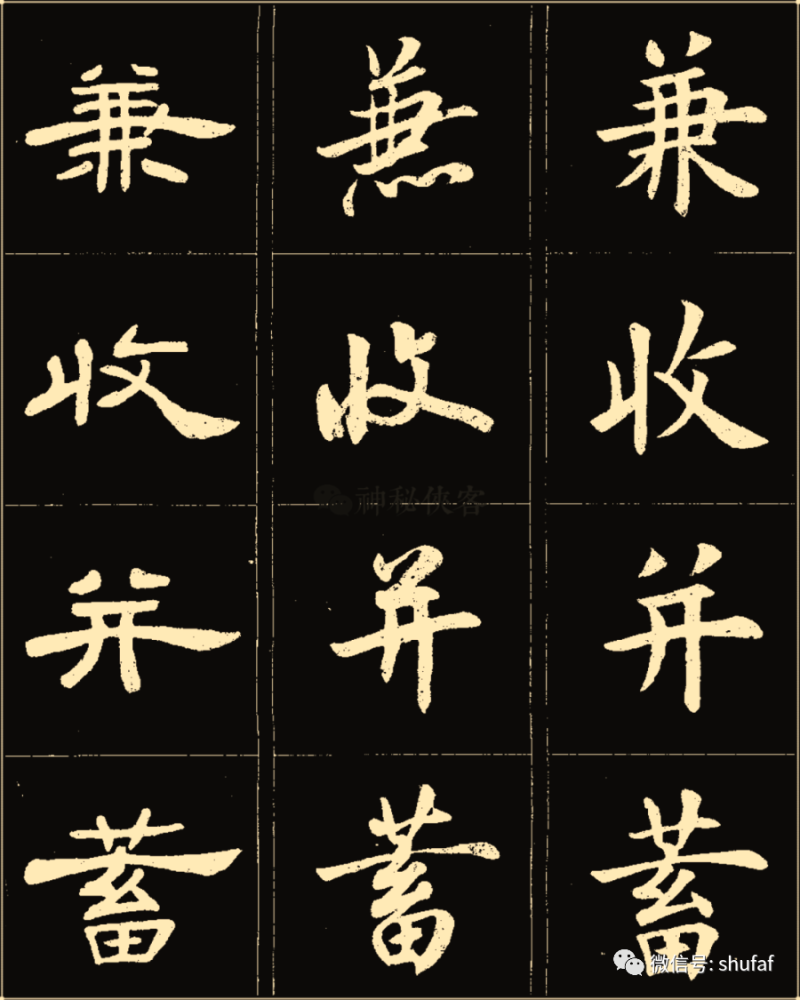 兼 兼 兼
收 收 收
并 并 并
神秘侠客
蓄 蓄 蓄
微信号: shufaf